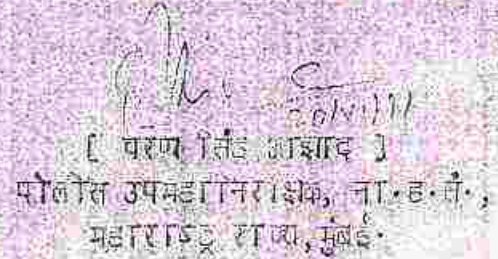 [ चरण सिंह आझाद ]
पोलीस उपमहानिरीक्षक, ना.ह.सं.,
महाराष्ट्र राज्य, मुंबई.